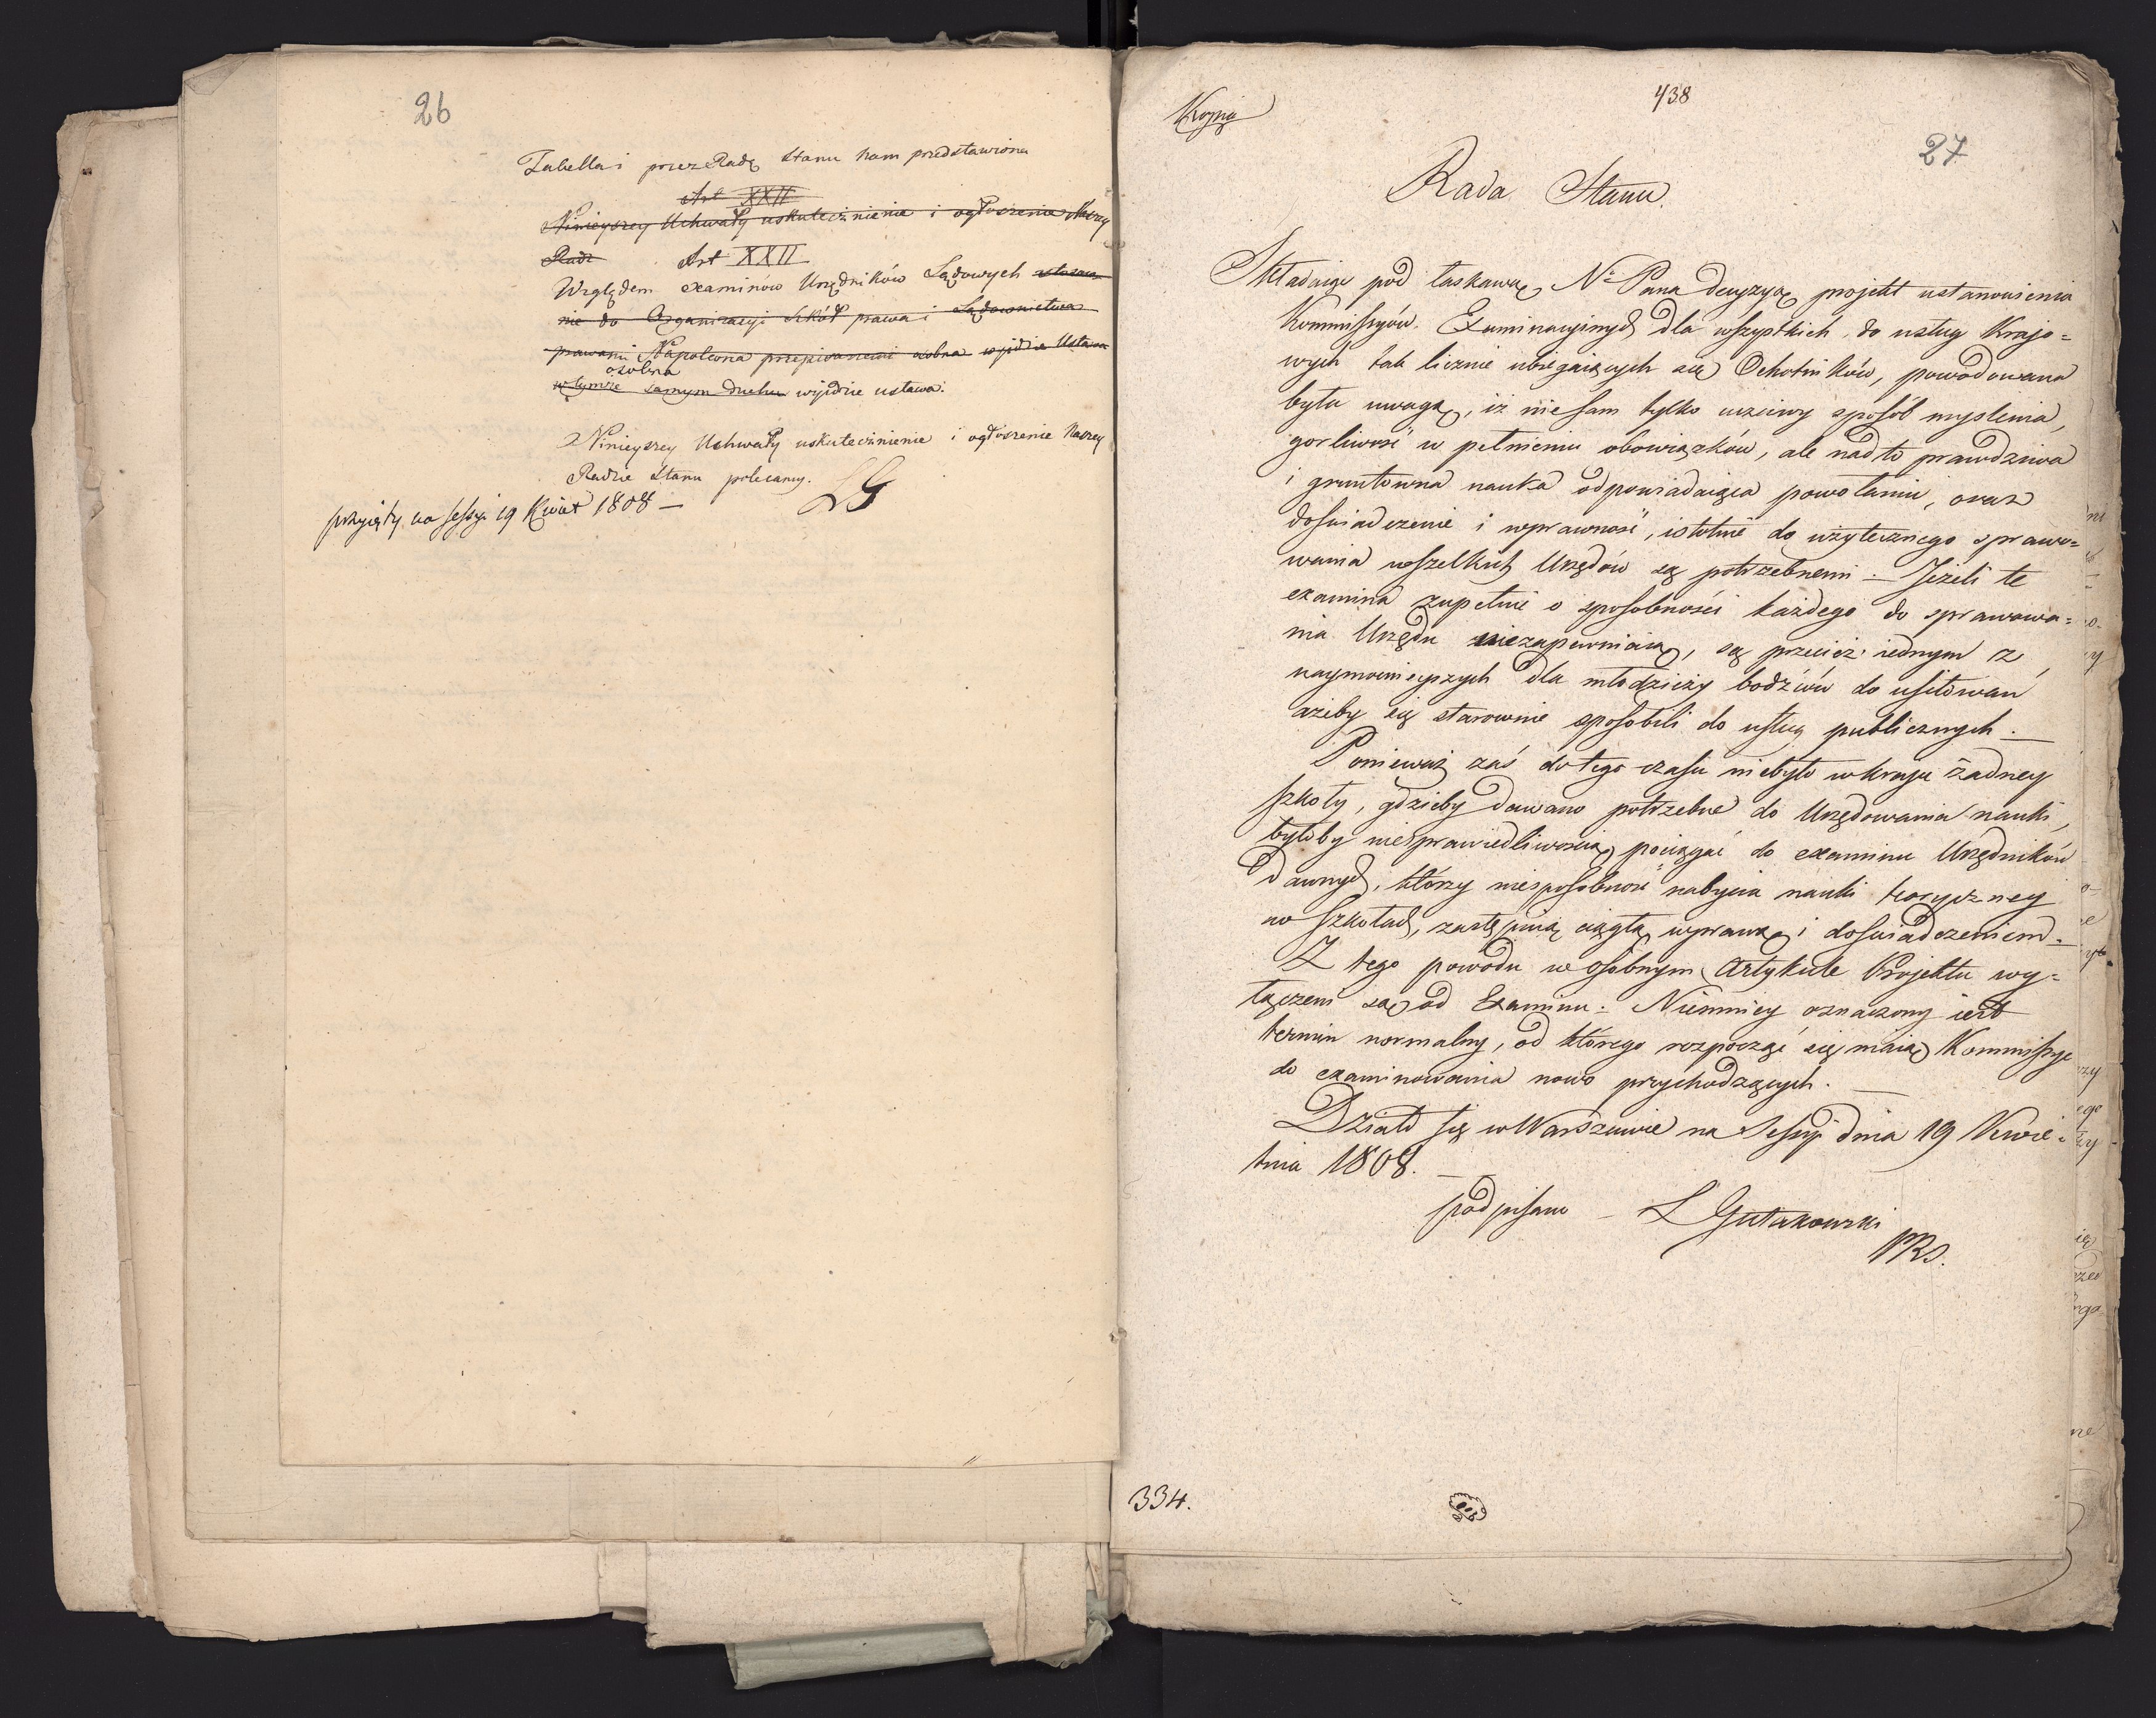 26
Tabella i przez Radę Stanu nam przedstawiona
Art XXII
Ninieyszey Uchwały uskutecznienie i ogłoszenie Naszey
Radz Art XXII
Względem examinów Urzędników Sądowych stosow
nie do Organizacyi Szkół prawa i Sądownictwa
prawami Napoleona przepisanemi osobna wyjdzie Ustawa
osobna
w tymże samym duchu wyjdzie ustawa.
Ninieyszey Uchwały uskutecznienie i ogłoszenie Naszey
Radzie Stanu polecamy.
LG
przyięty na sessyi 19 Kwiet 1808 —
438
Kopia
27
Rada Stanu.
Składaiąc pod łaskawą N. Pana decyzyą projekt ustanowienia
Kommissyów Examinacyinych dla wszystkich do usług Krajo=
wych tak licznie ubiegaiących się Ochotników, powodowana
była uwagą, iż nie sam tylko uczciwy sposób myslenia,
gorliwość w pełnieniu obowiązków, ale nadto prawdziwa
i gruntowna nauka odpowiadaiąca powołaniu, oraz
doświadczenie i wprawność, istotnie do użytecznego sprawo=
wania wszelkich Urzędów są potrzebnemi. — Jeżeli te
examina zupełnie o sposobności każdego do sprawowa=
nia Urzędu niezapewniaią, są przecież iednym z
naymocnieyszych dla młodzieży bodźców do usiłowań
ażeby się starownie sposobili do usług publicznych. —
Ponieważ zaś do tego czasu niebyło w kraju żadney
szkoły, gdzieby dawano potrzebne do Urzędowania nauki,
byłoby niesprawiedliwością pociągać do examinu Urzędników
dawnych, którzy niesposobność nabycia nauki teorycznéy
w szkołach, zastępuią ciągłą wprawą i doświadczeniem. —
Z tego powodu w osobnym Artykule Projektu wy=
łączeni są od Examinu. Niemniey oznaczony iest
termin normalny, od którego rozpocząć się maią Kommissye
do examinowania nowo przychodzących. —
Działo się w Warszawie na Sessyi dnia 19 Kwie=
tnia 1808. —
podpisano — L Gutakowski
PRS.
334.